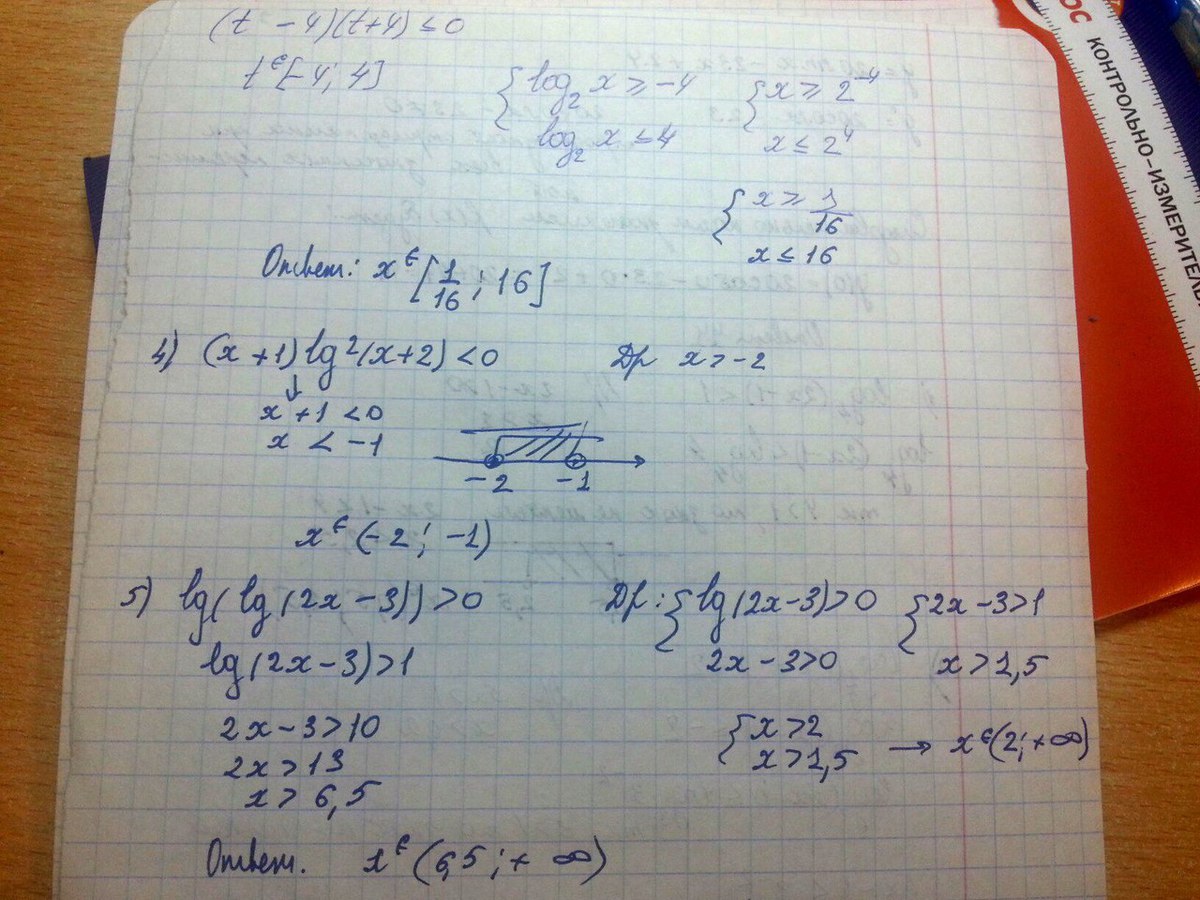 (t - 4)(t+4) ≤ 0
t ∈ [-4; 4]
{ log₂ x ≥ -4
log₂ x ≤ 4
{ x ≥ 2⁻⁴
x ≤ 2⁴
{ x ≥ 1/16
x ≤ 16
Ответ: x ∈ [1/16; 16]
4) (x+1) lg²(x+2) < 0
Др x > -2
↓
x + 1 < 0
x < -1
-2 -1
x ∈ (-2; -1)
5) lg(lg(2x-3)) > 0
Др: { lg(2x-3) > 0
2x-3 > 0
{ 2x-3 > 1
x > 1,5
lg(2x-3) > 1
2x-3 > 10
2x > 13
x > 6,5
{ x > 2
x > 1,5 → x ∈ (2; +∞)
Ответ. x ∈ (6,5; + ∞)
ОС
КОНТРОЛЬНО-ИЗМЕРИТЕЛ